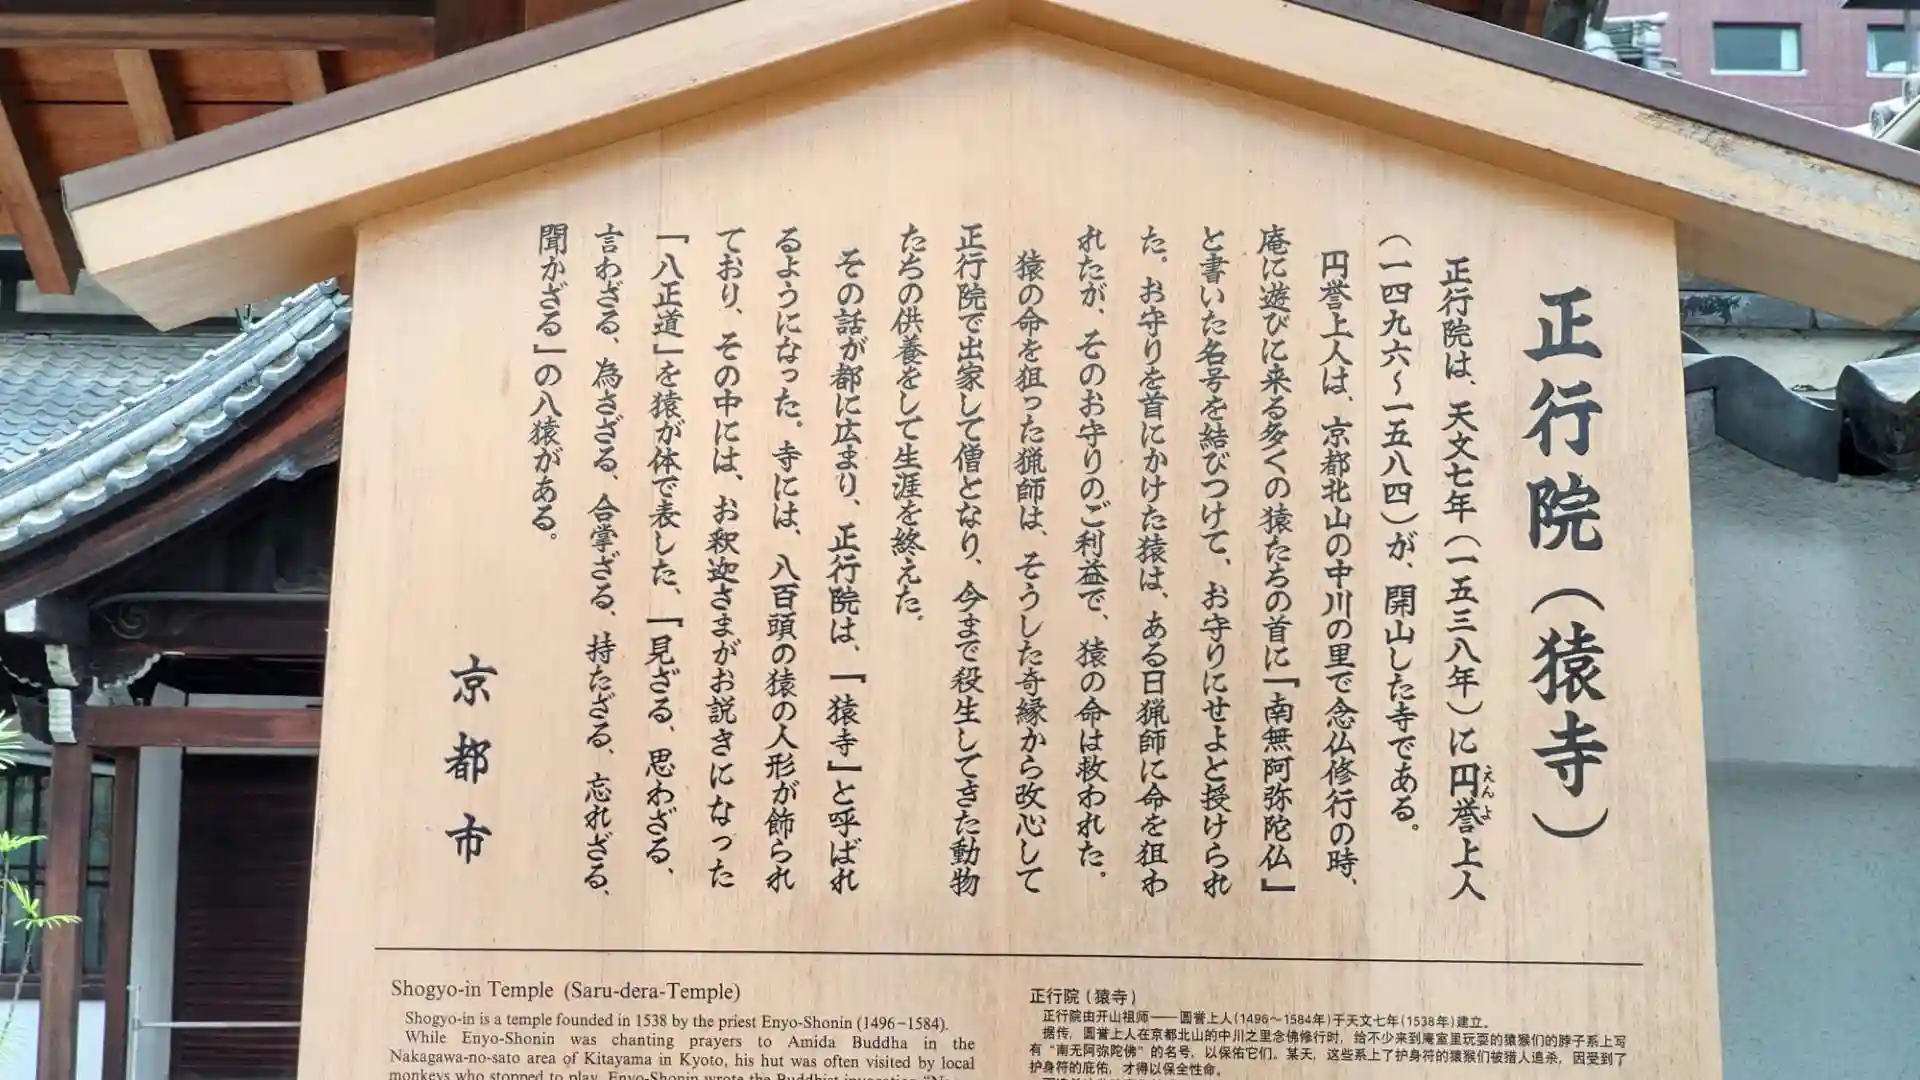 正行院（猿寺）
正行院は、天文七年（一五三八年）に円誉上人
えんよ
（一四九六～一五八四）が、開山した寺である。
円誉上人は、京都北山の中川の里で念仏修行の時、
庵に遊びに来る多くの猿たちの首に『南無阿弥陀仏』
と書いた名号を結びつけて、お守りにせよと授けられ
た。お守りを首にかけた猿は、ある日猟師に命を狙わ
れたが、そのお守りのご利益で、猿の命は救われた。
猿の命を狙った猟師は、そうした奇縁から改心して
正行院で出家して僧となり、今まで殺生してきた動物
たちの供養をして生涯を終えた。
その話が都に広まり、正行院は、『猿寺』と呼ばれ
るようになった。寺には、八百頭の猿の人形が飾られ
ており、その中には、お釈迦さまがお説きになった
「八正道」を猿が体で表した、『見ざる、思わざる、
言わざる、為さざる、合掌ざる、持たざる、忘れざる、
聞かざる』の八猿がある。
京都市
Shogyo-in Temple (Saru-dera-Temple)
Shogyo-in is a temple founded in 1538 by the priest Enyo-Shonin (1496–1584).
While Enyo-Shonin was chanting prayers to Amida Buddha in the
Nakagawa-no-sato area of Kitayama in Kyoto, his hut was often visited by local
monkeys who stopped to play. Enyo-Shonin wrote the Buddhist invocation
正行院（猿寺）
正行院由开山祖师——圆誉上人(1496～1584年)于天文七年(1538年)建立。
据传，圆誉上人在京都北山的中川之里念佛修行时，给不少来到庵室里玩耍的猿猴们的脖子系上写
有“南无阿弥陀佛”的名号，以保佑它们。某天，这些系上了护身符的猿猴们被猎人追杀，因受到了
护身符的庇佑，才得以保全性命。